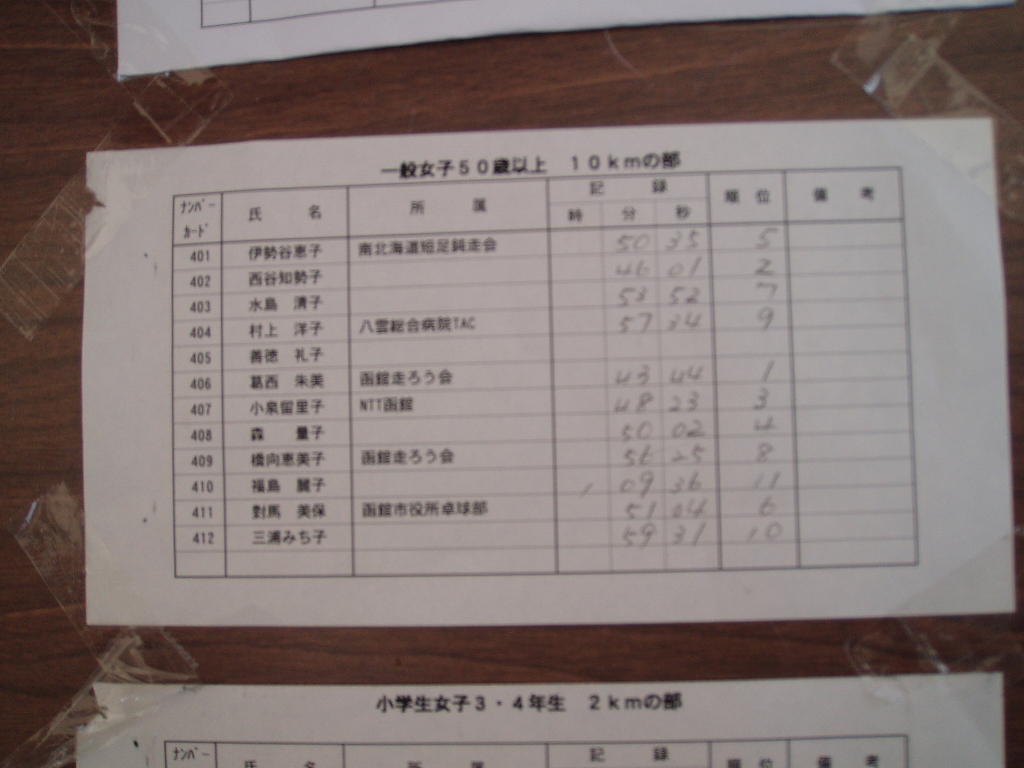 一般女子５０歳以上　１０ｋｍの部
ﾅﾝﾊﾞｰｶｰﾄﾞ 氏 名 所 属 記 録 順 位 備 考
時 分 秒
401 伊勢谷恵子 南北海道短足鈍走会 50 35 5
402 西谷知勢子 46 01 2
403 水島 清子 53 52 7
404 村上 洋子 八雲総合病院TAC 57 34 9
405 善徳 礼子
406 葛西 朱美 函館走ろう会 43 44 1
407 小泉留里子 NTT函館 48 23 3
408 森 量子 50 02 4
409 橋向恵美子 函館走ろう会 56 25 8
410 福島 麗子 1 09 36 11
411 對馬 美保 函館市役所卓球部 51 04 6
412 三浦みち子 59 31 10
小学生女子３・４年生　２ｋｍの部
ﾅﾝﾊﾞｰ 氏 名 所 属 記 録 順 位 備 考